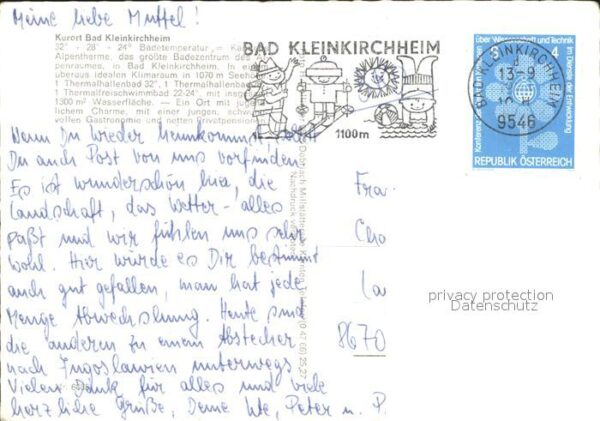 Meine liebe Muttel!
Kurort Bad Kleinkirchheim
32° - 28° - 24° Badetemperatur
Alpentherme, das größte Badezentrum des
penraumes, in Bad Kleinkirchheim. In eine
überaus idealen Klimaraum in 1070 m Seehö
1 Thermalhallenbad 32°, 1 Thermalhallenba
1 Thermalfreischwimmbad 22-24°, mit in
1300 m² Wasserfläche. – Ein Ort mit jug
lichem Charme, mit einer jungen, schw
vollen Gastronomie und netten Privatpension
BAD KLEINKIRCHHEIM
1100m
BAD KLEINKIRCHHEIM
13-9
9546
Konferenz der Vereinten Nationen über Wissenschaft und Technik im Dienste der Entwicklung
S 4
REPUBLIK ÖSTERREICH
Wenn Du wieder heimkommst sollst
Du auch Post von uns vorfinden.
Es ist wunderschön hier, die
Landschaft, das Wetter - alles
paßt und wir fühlen uns sehr
wohl. Hier würde es Dir bestimmt
auch gut gefallen, man hat jede
Menge Abwechslung. Heute sind
die anderen zu einem Abstecher
nach Jugoslawien unterwegs.
Vielen Dank für alles und viele
herzliche Grüße, Deine Ute, Peter u. P.
Nachdruck verboten
Frau
Cha
La
8670
privacy protection
Datenschutz